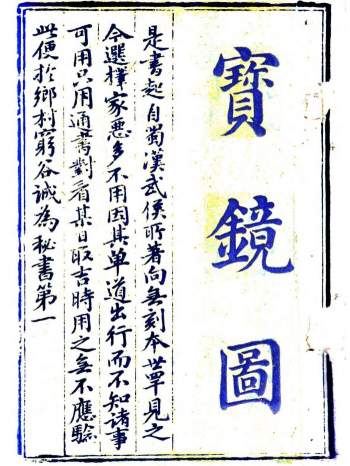 寶鏡圖
是書起自蜀漢武侯所著向無刻本世罕見之
今選擇家悉多不用因其單道出行而不知诸事
可用只用通書對看某日取吉時用之無不應驗
此便於鄉村窮谷誠為秘書第一